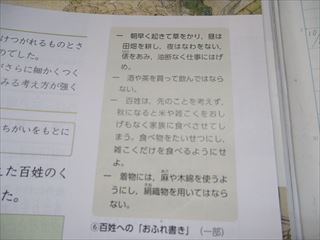 けつがれるものとさ
のでした。
がさらに細かくつく
みる考え方が強く
ちがいをもとに
えた百姓のく
た。
一 朝早く起きて草をかり、昼は
田畑を耕し、夜はなわをない、
俵をあみ、油断なく仕事にはげ
め。
一 酒や茶を買って飲んではなら
ない。
一 百姓は、先のことを考えず、
秋になると米や雑こくをお
しげもなく家族に食べさせてし
まう。食べ物をたいせつにし、
雑こくだけを食べるようにせ
よ。
一 着物には、麻や木綿を使うよ
うにし、絹織物を用いてはなら
ない。
⑥百姓への「おふれ書き」（一部）